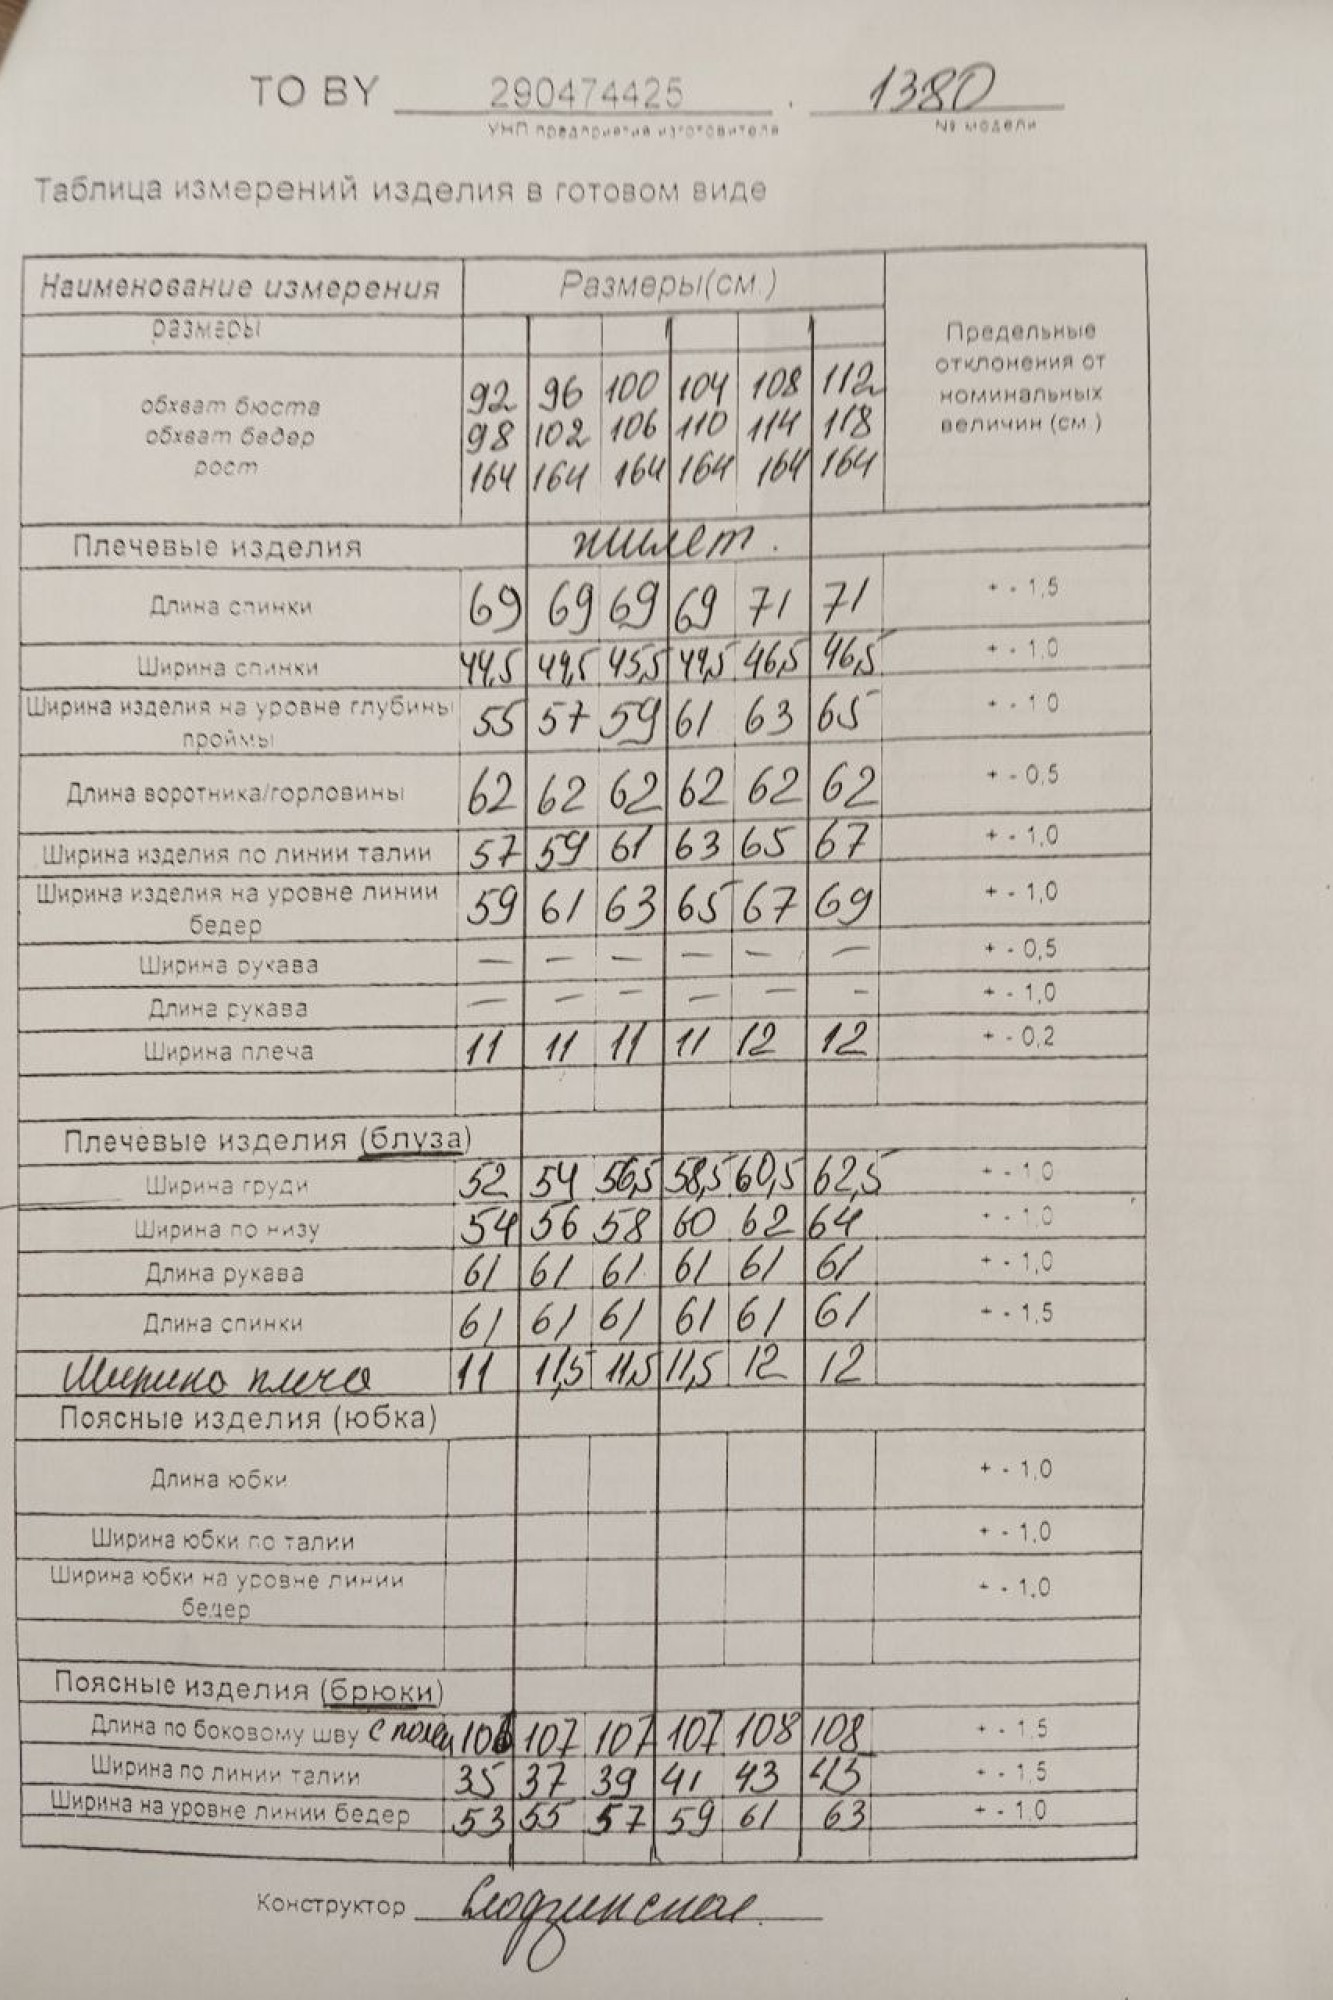 ТО BY 290474425 . 1380
УНП предприятия изготовителя № модели
Таблица измерений изделия в готовом виде
Наименование измерения Размеры(см.) Предельные отклонения от номинальных величин (см.)
размеры
обхват бюста 92 96 100 104 108 112
обхват бедер 98 102 106 110 114 118
рост 164 164 164 164 164 164
Плечевые изделия жилет.
Длина спинки 69 69 69 69 71 71 + - 1,5
Ширина спинки 44,5 44,5 45,5 44,5 46,5 46,5 + - 1,0
Ширина изделия на уровне глубины проймы 55 57 59 61 63 65 + - 1.0
Длина воротника/горловины 62 62 62 62 62 62 + - 0,5
Ширина изделия по линии талии 57 59 61 63 65 67 + - 1,0
Ширина изделия на уровне линии бедер 59 61 63 65 67 69 + - 1,0
Ширина рукава — — — — — — + - 0,5
Длина рукава — — — — — - + - 1,0
Ширина плеча 11 11 11 11 12 12 + - 0,2
Плечевые изделия (блуза)
Ширина груди 52 54 56,5 58,5 60,5 62,5 + - 1,0
Ширина по низу 54 56 58 60 62 64 + - 1,0
Длина рукава 61 61 61 61 61 61 + - 1,0
Длина спинки 61 61 61 61 61 61 + - 1,5
Ширина плеча 11 11,5 11,5 11,5 12 12
Поясные изделия (юбка)
Длина юбки + - 1,0
Ширина юбки по талии + - 1,0
Ширина юбки на уровне линии бедер + - 1.0
Поясные изделия (брюки)
Длина по боковому шву с 106 107 107 107 108 108 + - 1.5
Ширина по линии талии 35 37 39 41 43 43 + - 1,5
Ширина на уровне линии бедер 53 55 57 59 61 63 + - 1.0
Конструктор